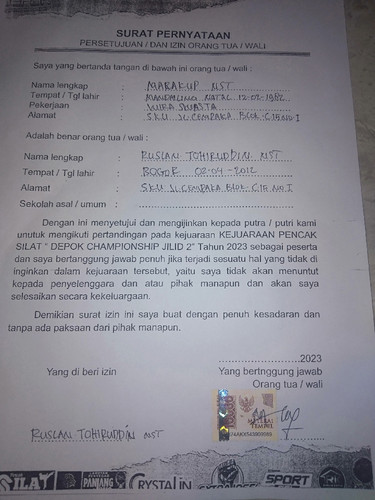 SURAT PERNYATAAN
PERSETUJUAN / DAN IZIN ORANG TUA / WALI
Saya yang bertanda tangan di bawah ini orang tua / wali :
Nama lengkap : MARAKUP NST
Tempat / Tgl lahir : MANDAILING NATAL 12-02-1982
Pekerjaan : WIRA SWASTA
Alamat : SKU JL. CEMPAKA BLOK. C 18 NO. I
Adalah benar orang tua / wali :
Nama lengkap : RUSLAN TOHIRUDDIN NST
Tempat / Tgl lahir : BOGOR 02-04-2012
Alamat : SKU JL. CEMPAKA BLOK. C 18 NO. I
Sekolah asal / umum :
Dengan ini menyetujui dan mengijinkan kepada putra / putri kami
unutuk mengikuti pertandingan pada kejuaraan KEJUARAAN PENCAK
SILAT " DEPOK CHAMPIONSHIP JILID 2" Tahun 2023 sebagai peserta
dan saya bertanggung jawab penuh jika terjadi sesuatu hal yang tidak di
inginkan dalam kejuaraan tersebut, yaitu saya tidak akan menuntut
kepada penyelenggara dan atau pihak manapun dan akan saya
selesaikan secara kekeluargaan.
Demikian surat izin ini saya buat dengan penuh kesadaran dan
tanpa ada paksaan dari pihak manapun.
......................2023
Yang di beri izin
Yang bertnggung jawab
Orang tua / wali
TEMPEL
RUSLAN TOHIRUDDIN NST
SILAT
PANJANG
CRYSTALIN
SPORT